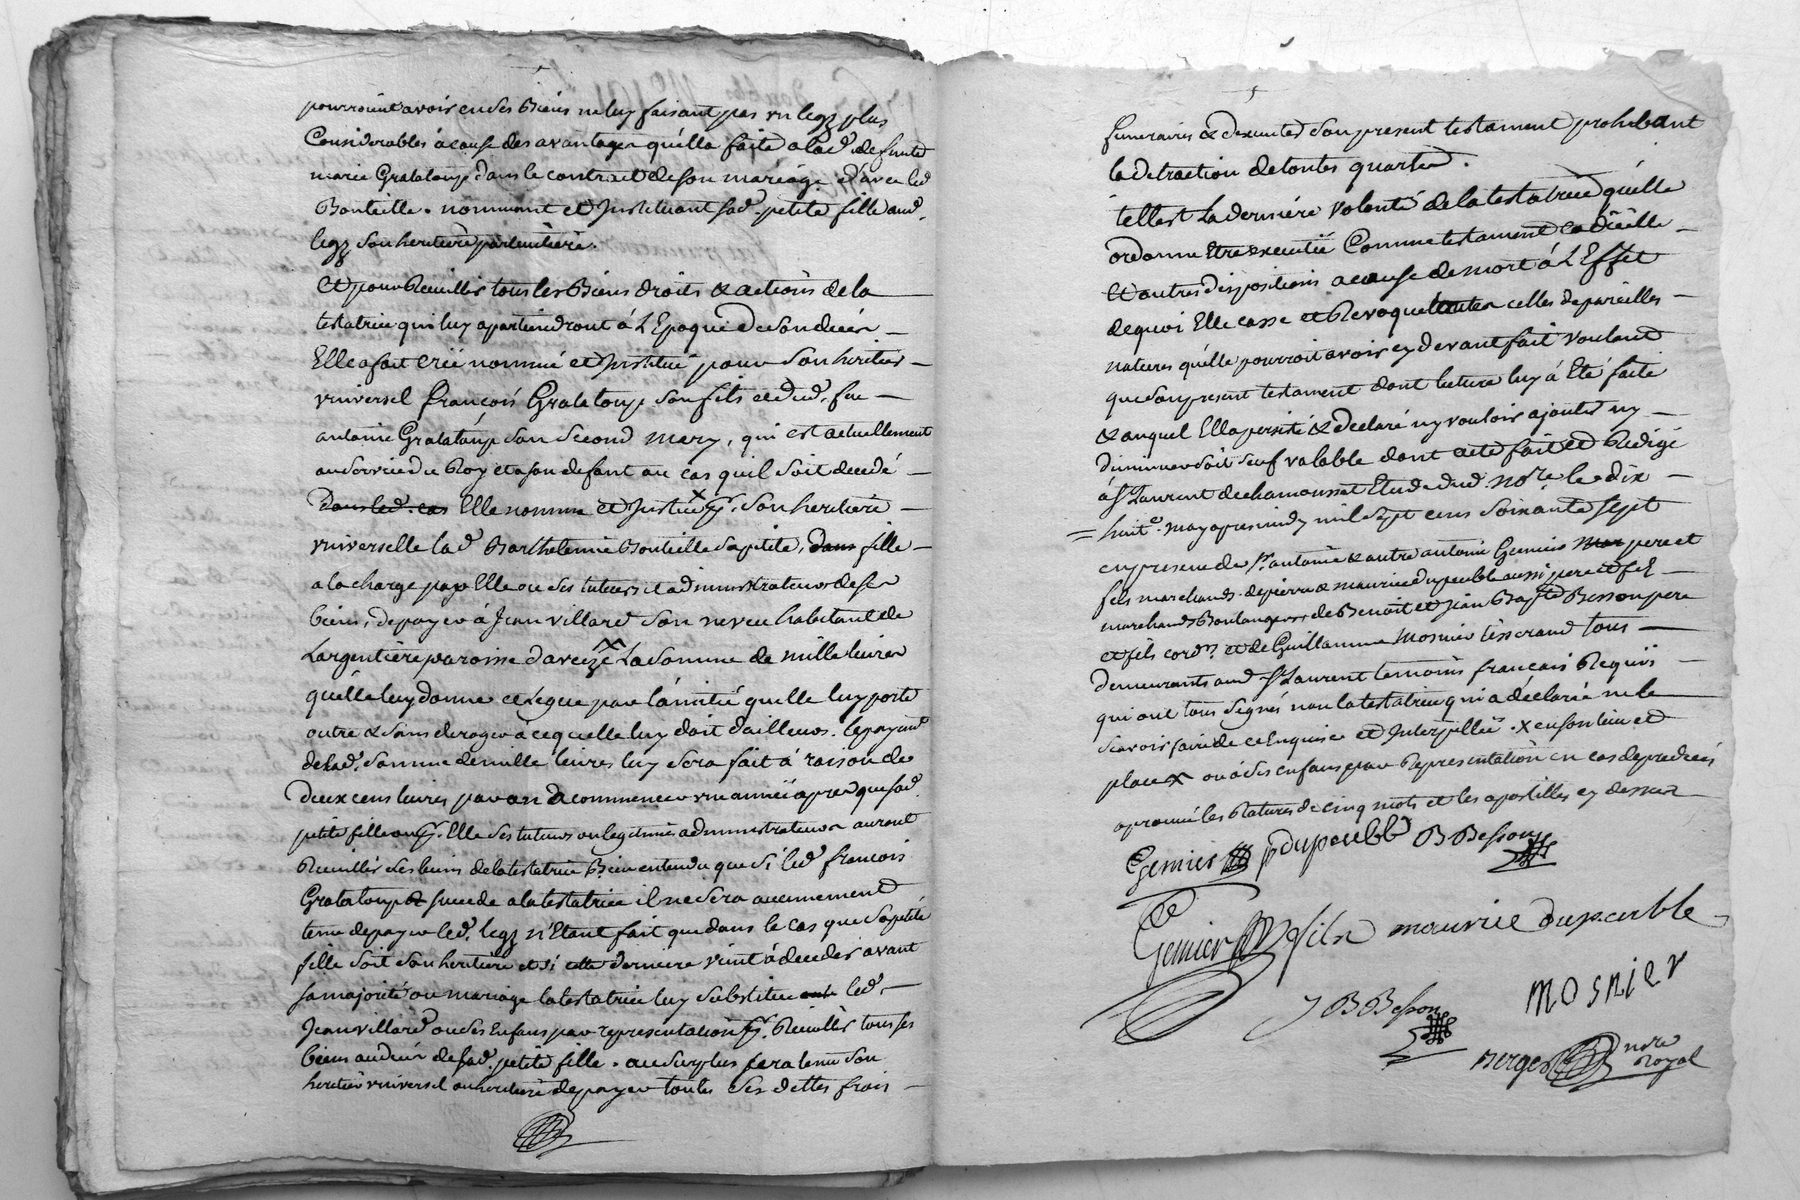 pourroient avoir en ses Biens ne luy faisant pas un legz plus
Considerables à cause des avantages qu'élla faite a lad. defunte
marie Grataloup dans le contrait de son mariâge d'avec led
Bouteille. nommant et Instituant sad. petite fille aud.
legz son heritiere particuliere.
Et pour Recuillir tous les Biens droits & actions de la
testatrice qui luy apartiendront á L'Epoque de son decès
Elle a fait créé nommé et Institué pour son heritier
vniversel françois Grataloup son fils et dud. feu
antoine Grataloup son second mary, qui est actuellement
au service du Roy et a son defaut au cas quil soit decedé
Dans led. cas Elle nomme et Institue son heritiere
vniverselle lad. Barthelemie Bouteille sa petite, dans fille
a la charge par Elle ou ses tuteurs et administrateurs de ses
biens, de payer à Jean villard son neveu habitant de
Largentiere paroisse d'aveize La somme de mille livres
qu'élle luy donne et Legue pour l'amitié quelle luy porte
outre & sans deroger à ce quelle luy doit d'ailleurs. le payemt
de lad. somme de mille livres luy sera fait á raison de
deux cens livres par an à commencer vne année aprés que sad.
petite fille Elle ses tuteurs ou legitimes administrateurs auront
Recuillis les biens de la testatrice Bien entendu que si led. francois
Grataloup succede a la testatrice il ne sera aucunement
tenu de payer led. legz n'Etant fait que dans le cas que sa petite
fille soit son heritiere et si cette derniere vint à deceder avant
sa majorité ou mariage la testatrice luy substitue led.
Jean villard ou ses Enfans par representation Recuillir tous ses
biens au decès de sad. petite fille. au surplus sera tenu son
heritier vniversel ou heritiere de payer toutes ses dettes frais
funeraires & d'executer son present testament prohibant
la detraction de toutes quartes.
telle est La derniére volonté de la testatrice qu'elle
ordonne Etre executée Comme testament codicille
Et autres dispositions a cause de mort á L'Effet
de quoi Elle casse et Revoque toutes celles de pareilles
natures qu'elle pourroit avoir cy devant fait voulant
que son present testament dont lecture luy á Eté faite
& auquel Ella persisté & declaré ny vouloir ajouter ny
diminuer soit seul valable dont acte fait et Redigé
á St Laurent de chamousset Etude dud. nore. le dix
= huite. may apres midy mil sept cens soixante sept
en presence de sr. antoine & autre antoine Gemier pere et
fils marchands. de pierre & maurice dupeuble aussi pere et fils
marchands Boulangers, de Benoit et Jean Bapte Besson pere
et fils cordrs. et de Guillaume Mosnier tisserand tous
demeurants aud. St Laurent temoins français Requis
qui ont tous signés non la testatrice qui a déclarée ne le
scavoir faire de ce Enquise et Interpellée. x en son lieu et
place x ou à ses enfans par Representation en cas de predecés
aprouvé les Ratures de cinq mots et les apostilles cy dessus
Gemier pdupeuble B Besson
Gemier fils maurice dupeuble
J B Besson mosnier
Berger nore
Royal